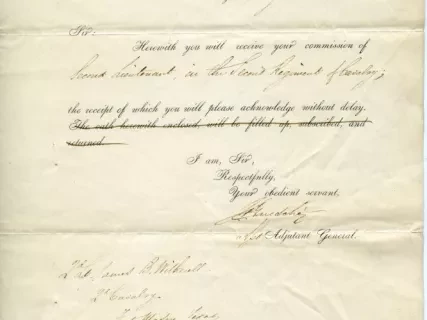 Sir:
Herewith you will receive your commission of
Second Lieutenant, in the Second Regiment of Cavalry;
the receipt of which you will please acknowledge without delay.
The oath herewith enclosed, will be filled up, subscribed, and
returned.
I am, Sir,
Respectfully,
Your obedient servant,
Adjutant General.
James B.
2d Cavalry,